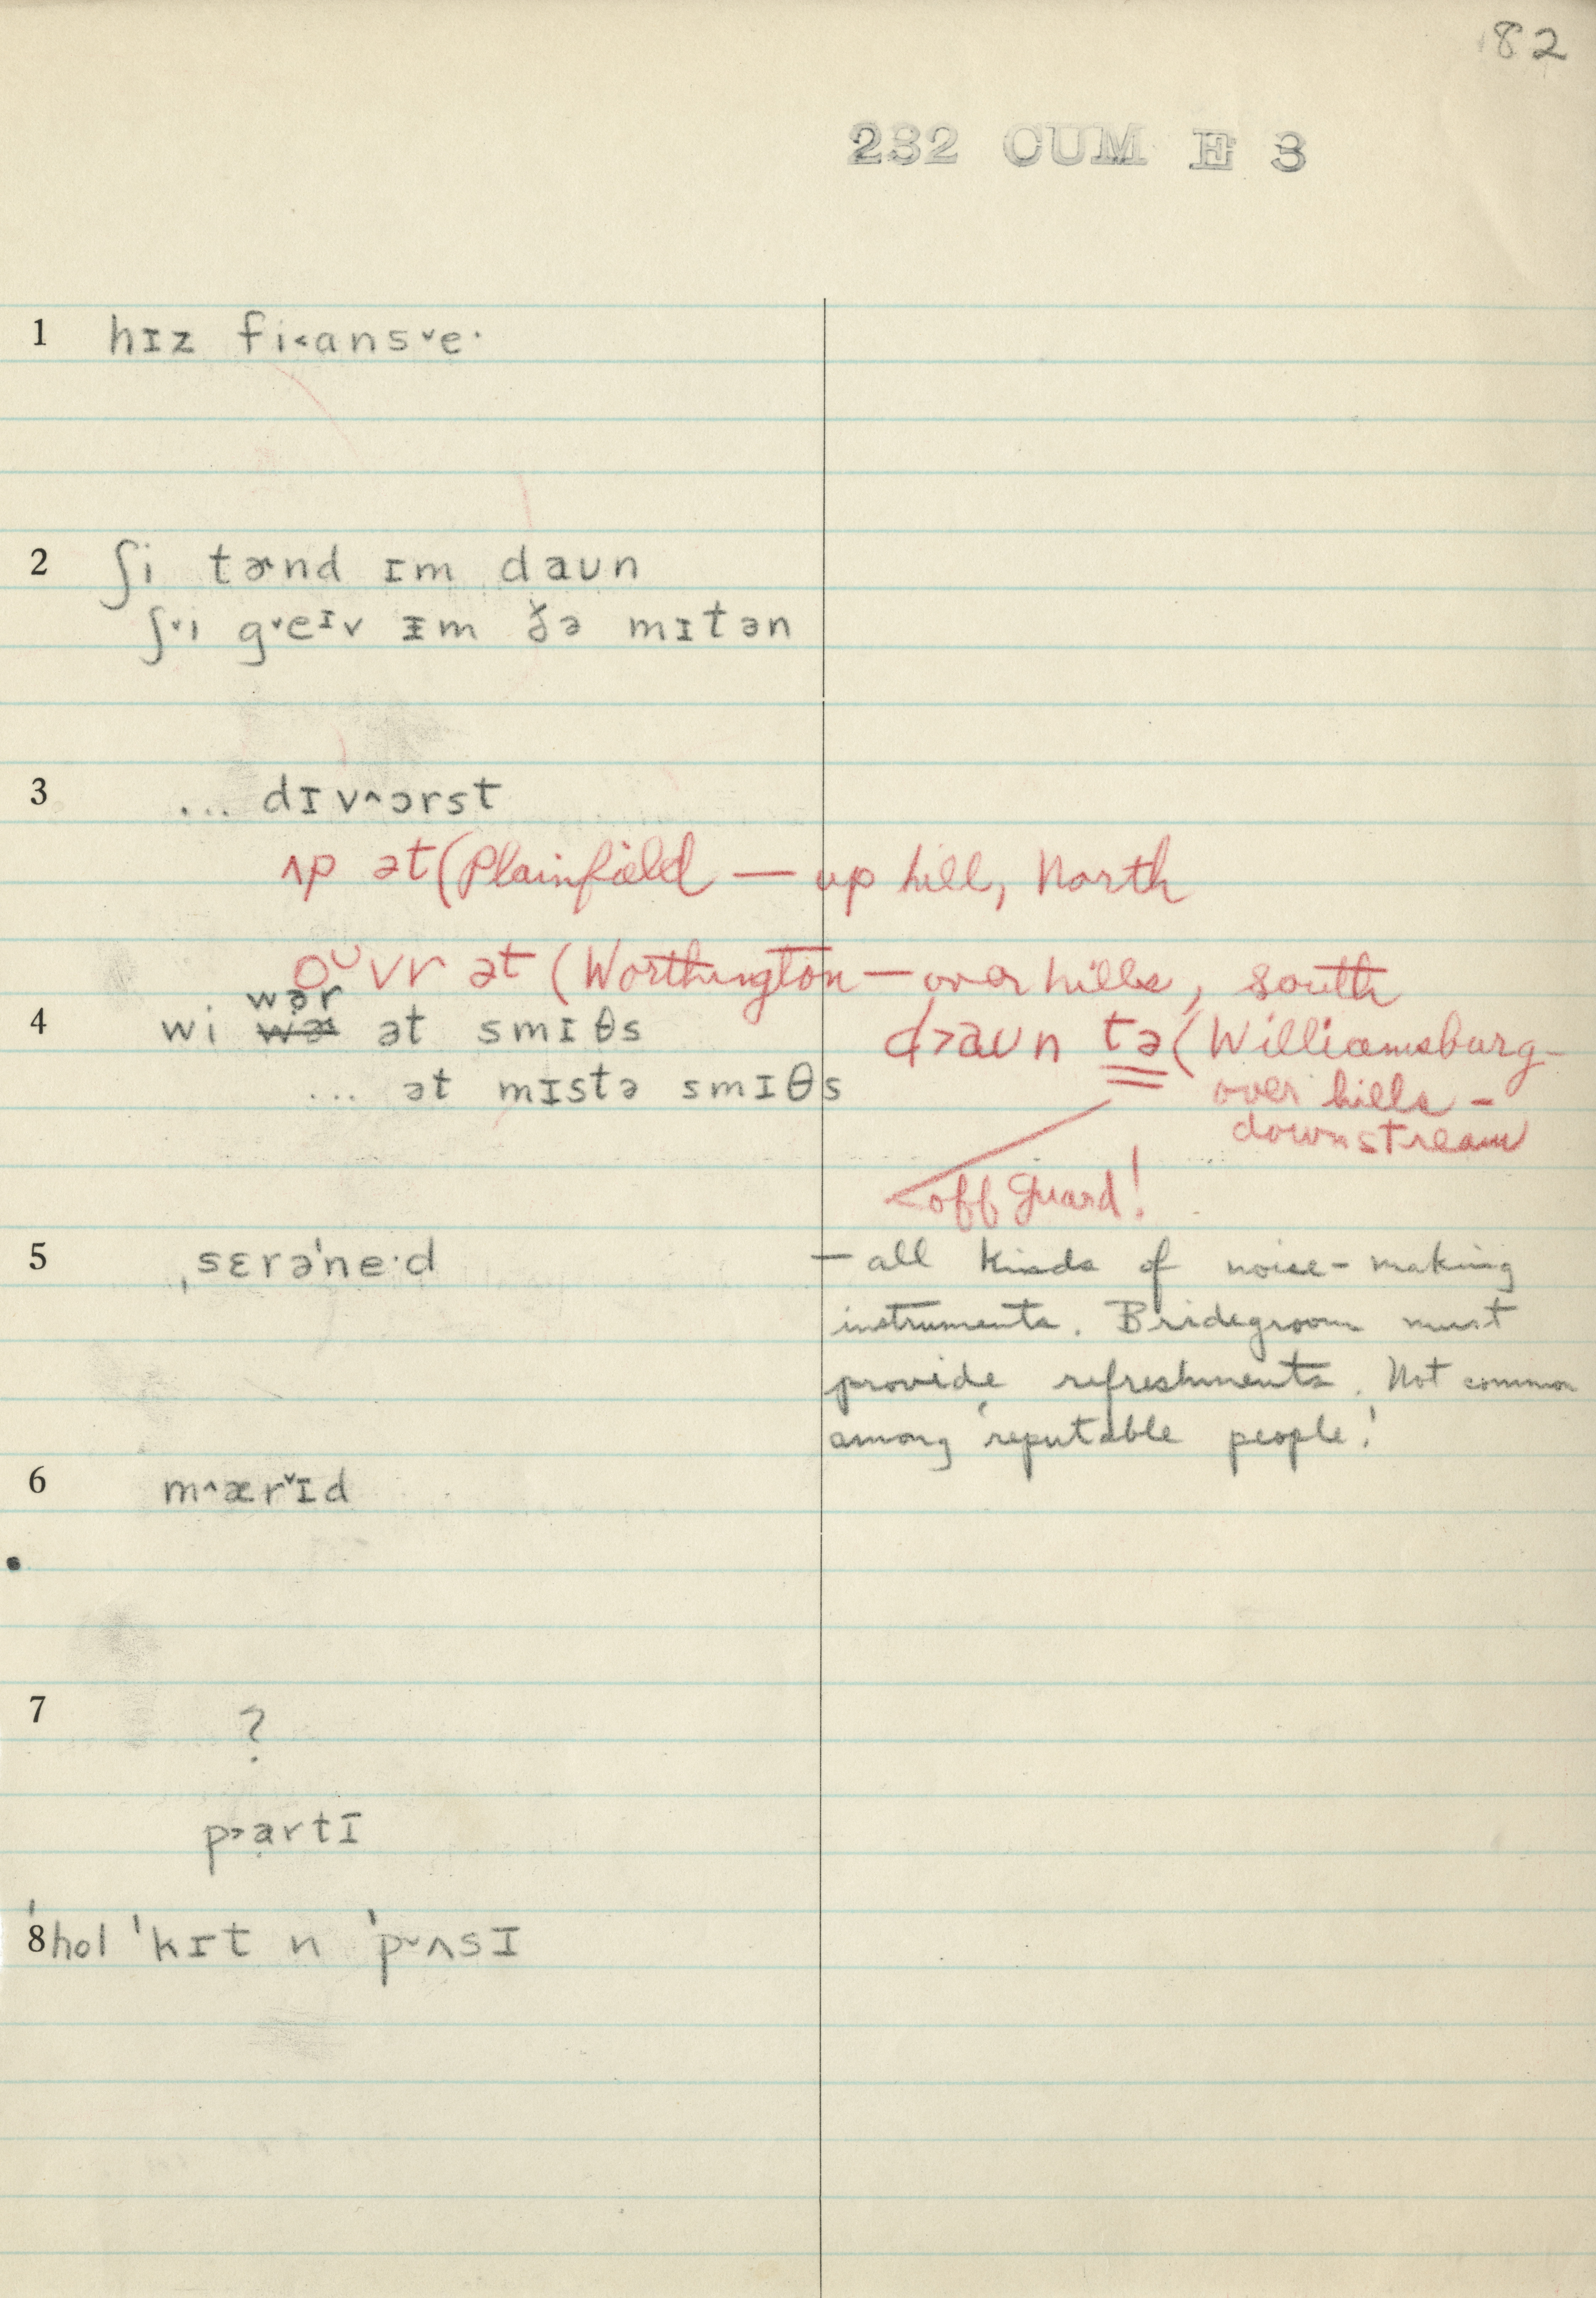 82
232 CUM E 3
1 hɪz fi˂ansˇe·
2 ʃi tɚnd ɪm daʊn
ʃˇi gˇeᶦv ɪm ðə mɪtən
3 ... dɪvˆɔrst
ʌp ət (Plainfield — up hill, North
oᵁvr ət (Worthington — over hills, south
wər
4 wi wɚ ət smɪθs
d˃aʊn tə (Williamsburg-
... ət mɪstə smɪθs
over hills -
downstream
off guard!
5 ˌsɛrəˈne·d — all kinds of noise-making
instruments. Bridegroom must
provide refreshments. Not common
among 'reputable people.'
6 mˆærˇɪd
7 ?
p˃ạrtɪ
8 ˈhol ˈkɪt n ˈpˇʌsɪ